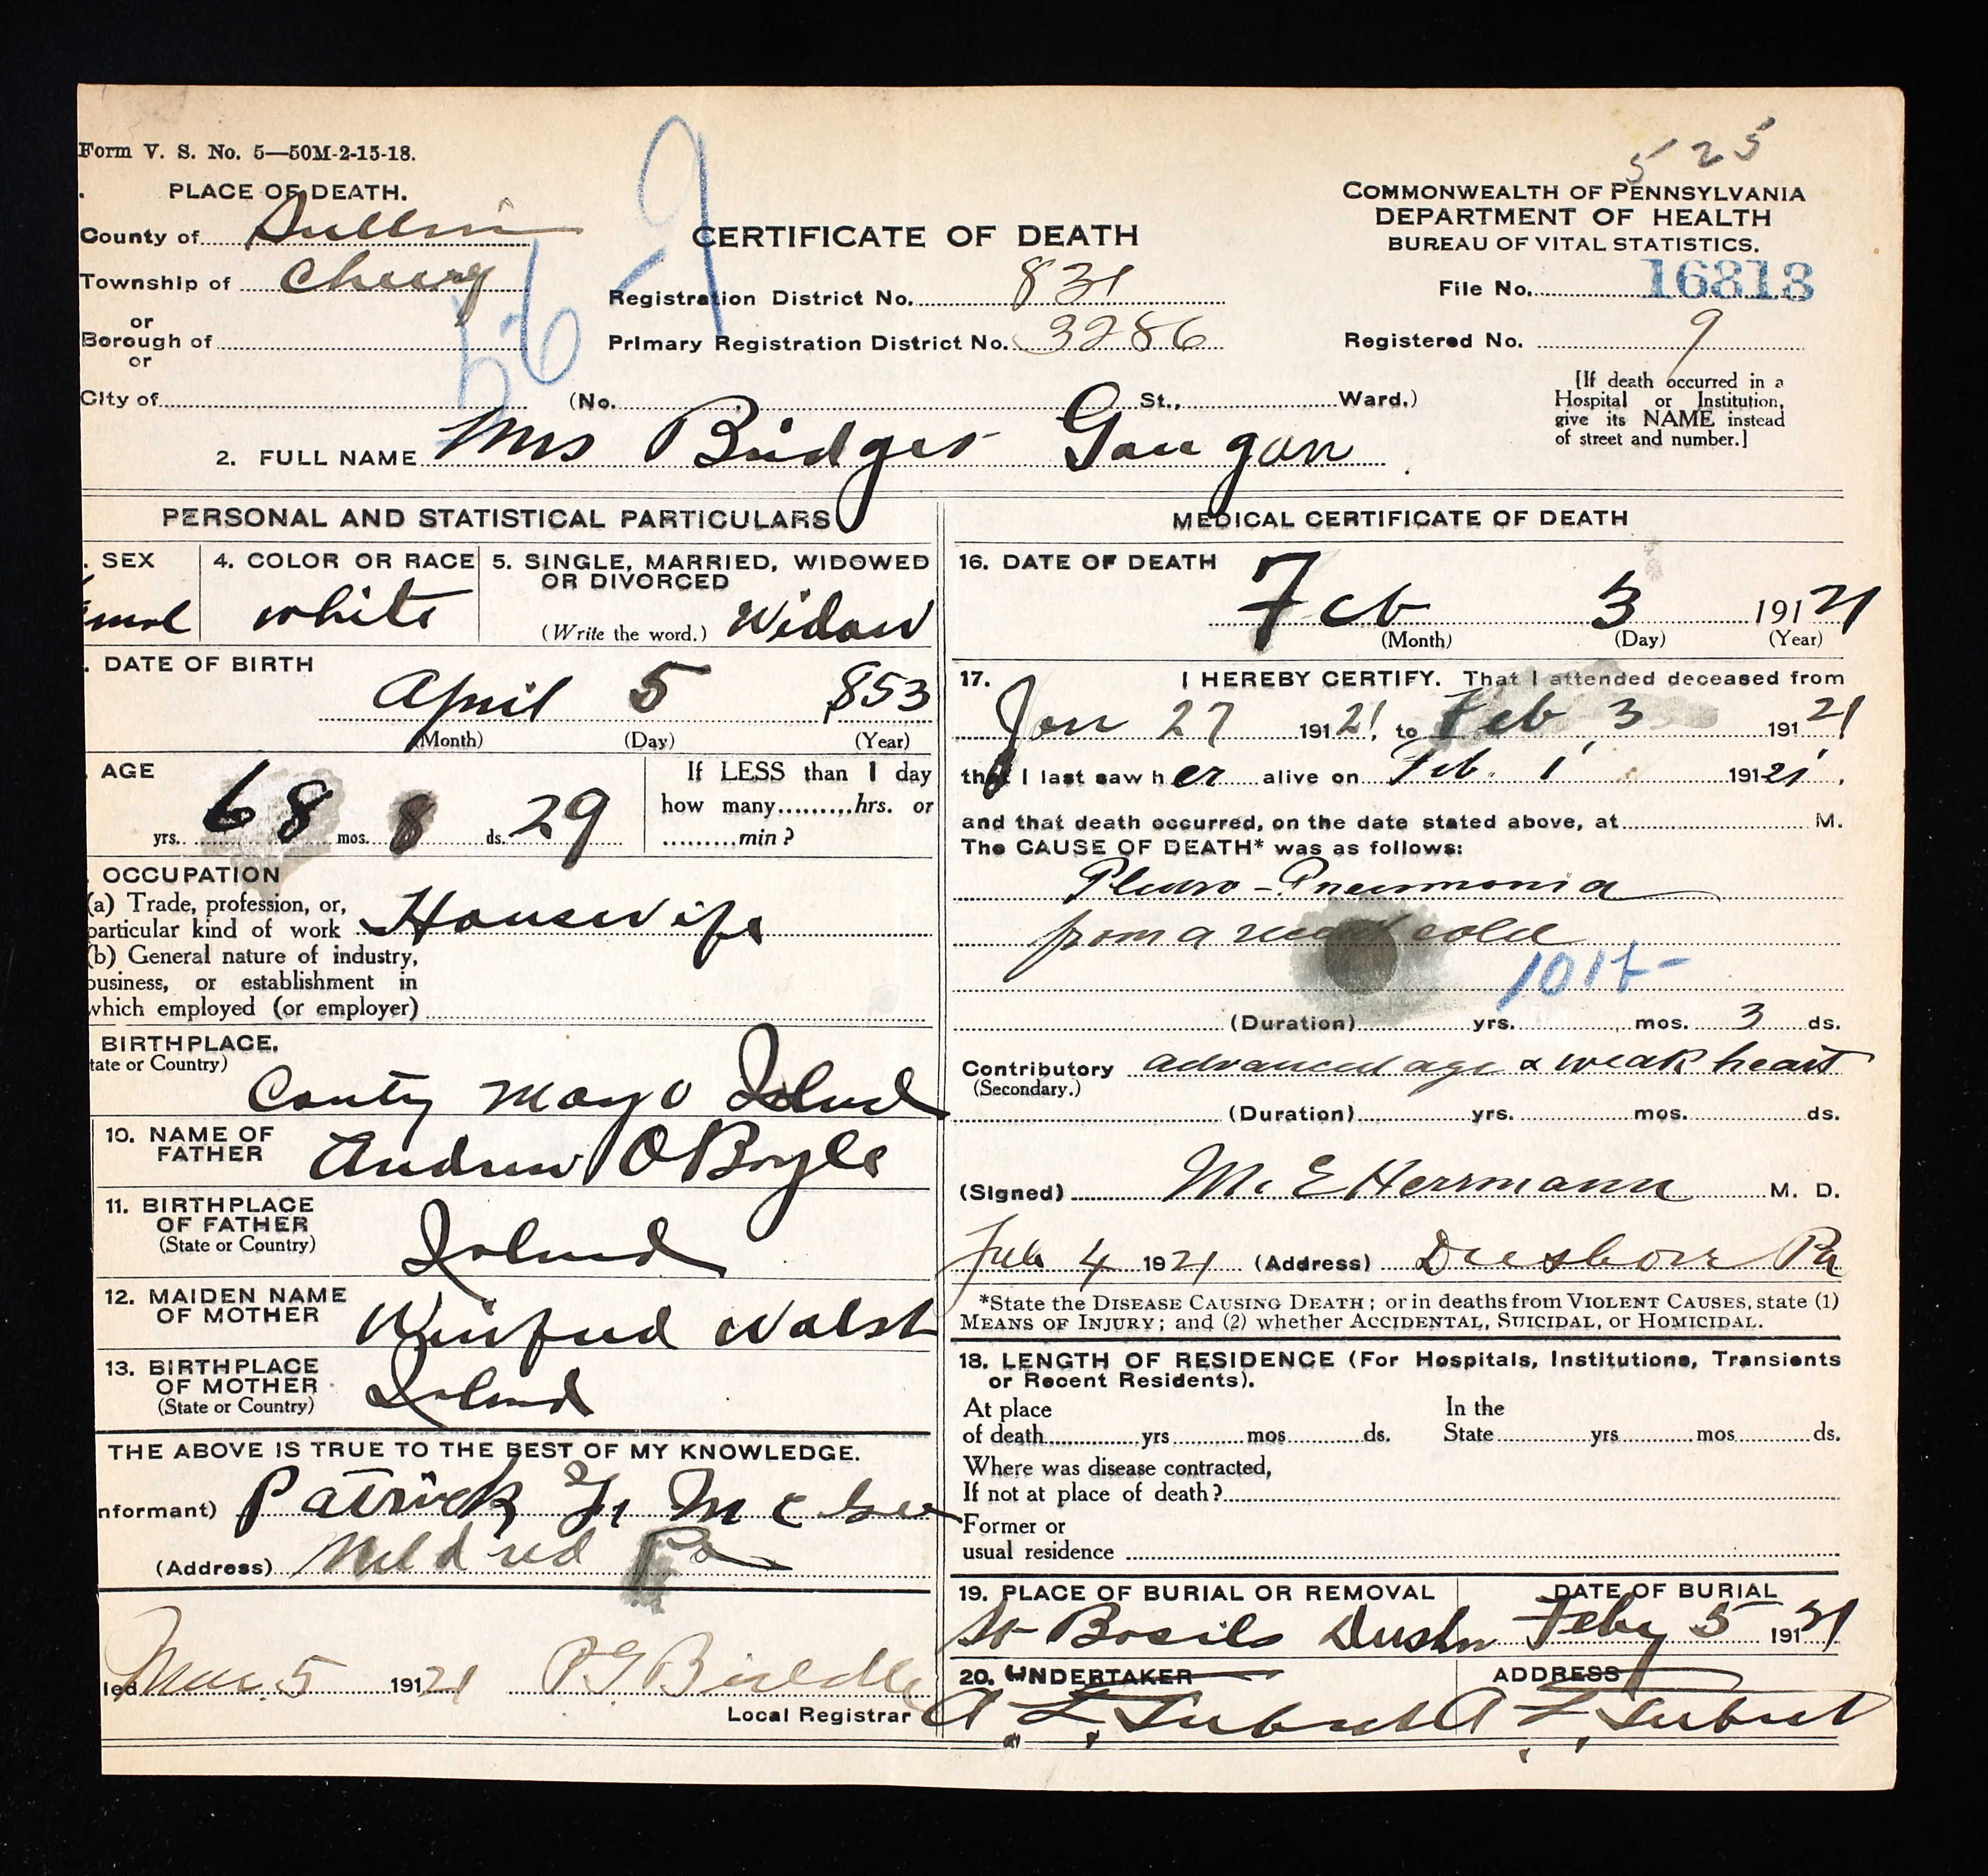 525
Form V. S. No. 5—50M-2-15-18.
PLACE OF DEATH.
County of Sullivan
Township of Cherry
or
Borough of
or
City of
569
CERTIFICATE OF DEATH
Registration District No. 831
Primary Registration District No. 3286
(No. St., Ward.)
COMMONWEALTH OF PENNSYLVANIA
DEPARTMENT OF HEALTH
BUREAU OF VITAL STATISTICS.
File No. 16813
Registered No. 9
[If death occurred in a
Hospital or Institution,
give its NAME instead
of street and number.]
2. FULL NAME Mrs Bridget Gaugan
PERSONAL AND STATISTICAL PARTICULARS
. SEX
4. COLOR OR RACE
white
5. SINGLE, MARRIED, WIDOWED
OR DIVORCED
(Write the word.) Widow
. DATE OF BIRTH
April 5 1853
(Month) (Day) (Year)
. AGE
68 yrs. 8 mos. 29 ds.
If LESS than 1 day
how many hrs. or
min?
. OCCUPATION
(a) Trade, profession, or,
particular kind of work Housewife
(b) General nature of industry,
business, or establishment in
which employed (or employer)
BIRTHPLACE.
tate or Country)
County Mayo Ireland
10. NAME OF
FATHER Andrew O Boyle
11. BIRTHPLACE
OF FATHER
(State or Country) Ireland
12. MAIDEN NAME
OF MOTHER Winifred Walsh
13. BIRTHPLACE
OF MOTHER
(State or Country) Ireland
THE ABOVE IS TRUE TO THE BEST OF MY KNOWLEDGE.
nformant) Patrick F. McGee
(Address) Mildred Pa
led Mar. 5 1921
Local Registrar
MEDICAL CERTIFICATE OF DEATH
16. DATE OF DEATH
Feb 3 191 21
(Month) (Day) (Year)
17. I HEREBY CERTIFY. That I attended deceased from
Jan 27 191 21, to Feb 3 191 21
that I last saw her alive on Feb. 1 191 21.
and that death occurred, on the date stated above, at M.
The CAUSE OF DEATH* was as follows:
Pleuro-Pneumonia
from a cold
101b-
(Duration) yrs. mos. 3 ds.
Contributory advanced age & weak heart
(Secondary.)
(Duration) yrs. mos. ds.
(Signed) M. E Herrmann M. D.
Feb 4 1921 (Address) Dushore Pa
*State the DISEASE CAUSING DEATH; or in deaths from VIOLENT CAUSES, state (1)
MEANS OF INJURY; and (2) whether ACCIDENTAL, SUICIDAL, or HOMICIDAL.
18. LENGTH OF RESIDENCE (For Hospitals, Institutions, Transients
or Recent Residents).
At place
of death yrs mos ds.
In the
State yrs mos ds.
Where was disease contracted,
If not at place of death?
Former or
usual residence
19. PLACE OF BURIAL OR REMOVAL
St Basils
DATE OF BURIAL
Feby 5 191 21
20. UNDERTAKER
ADDRESS